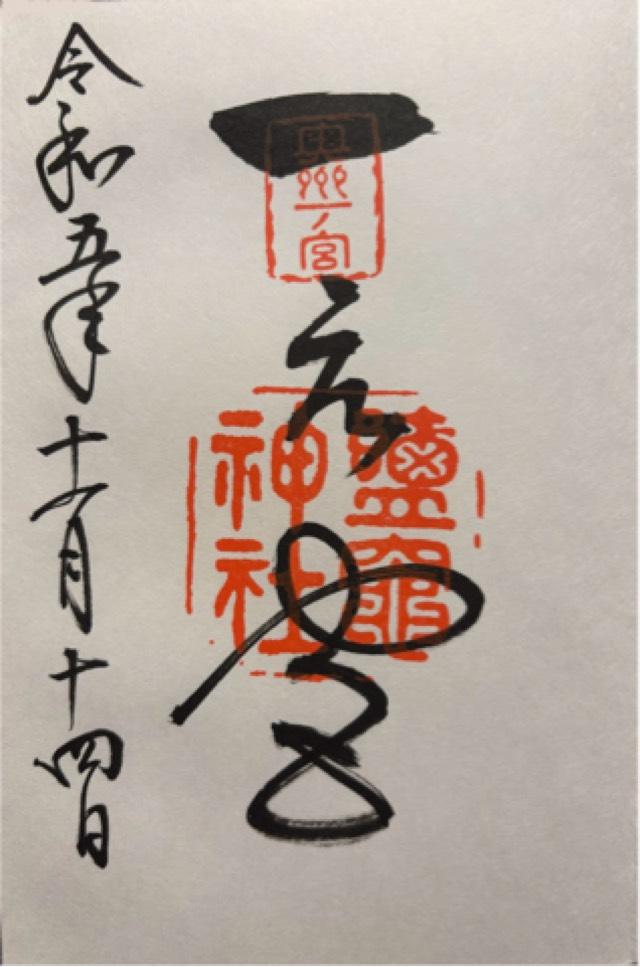 奥州一ノ宮
一之宮
鹽竈神社
令和五年十一月十四日